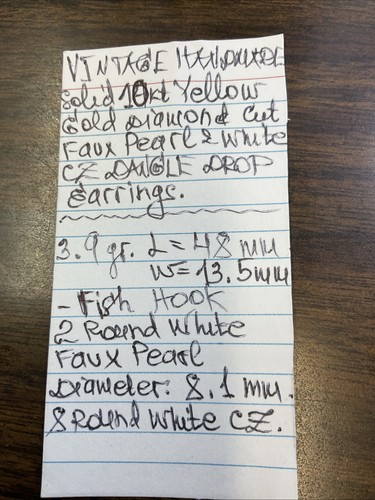 VINTAGE HANDMADE
Solid 10kt Yellow
Gold Diamond Cut
Faux Pearl & White
CZ DANGLE DROP
Earrings.
3.9 gr. L = 48 mm
W = 13.5mm
- Fish Hook
2 Round White
Faux Pearl
Diameter: 8.1 mm.
8 Round White CZ.